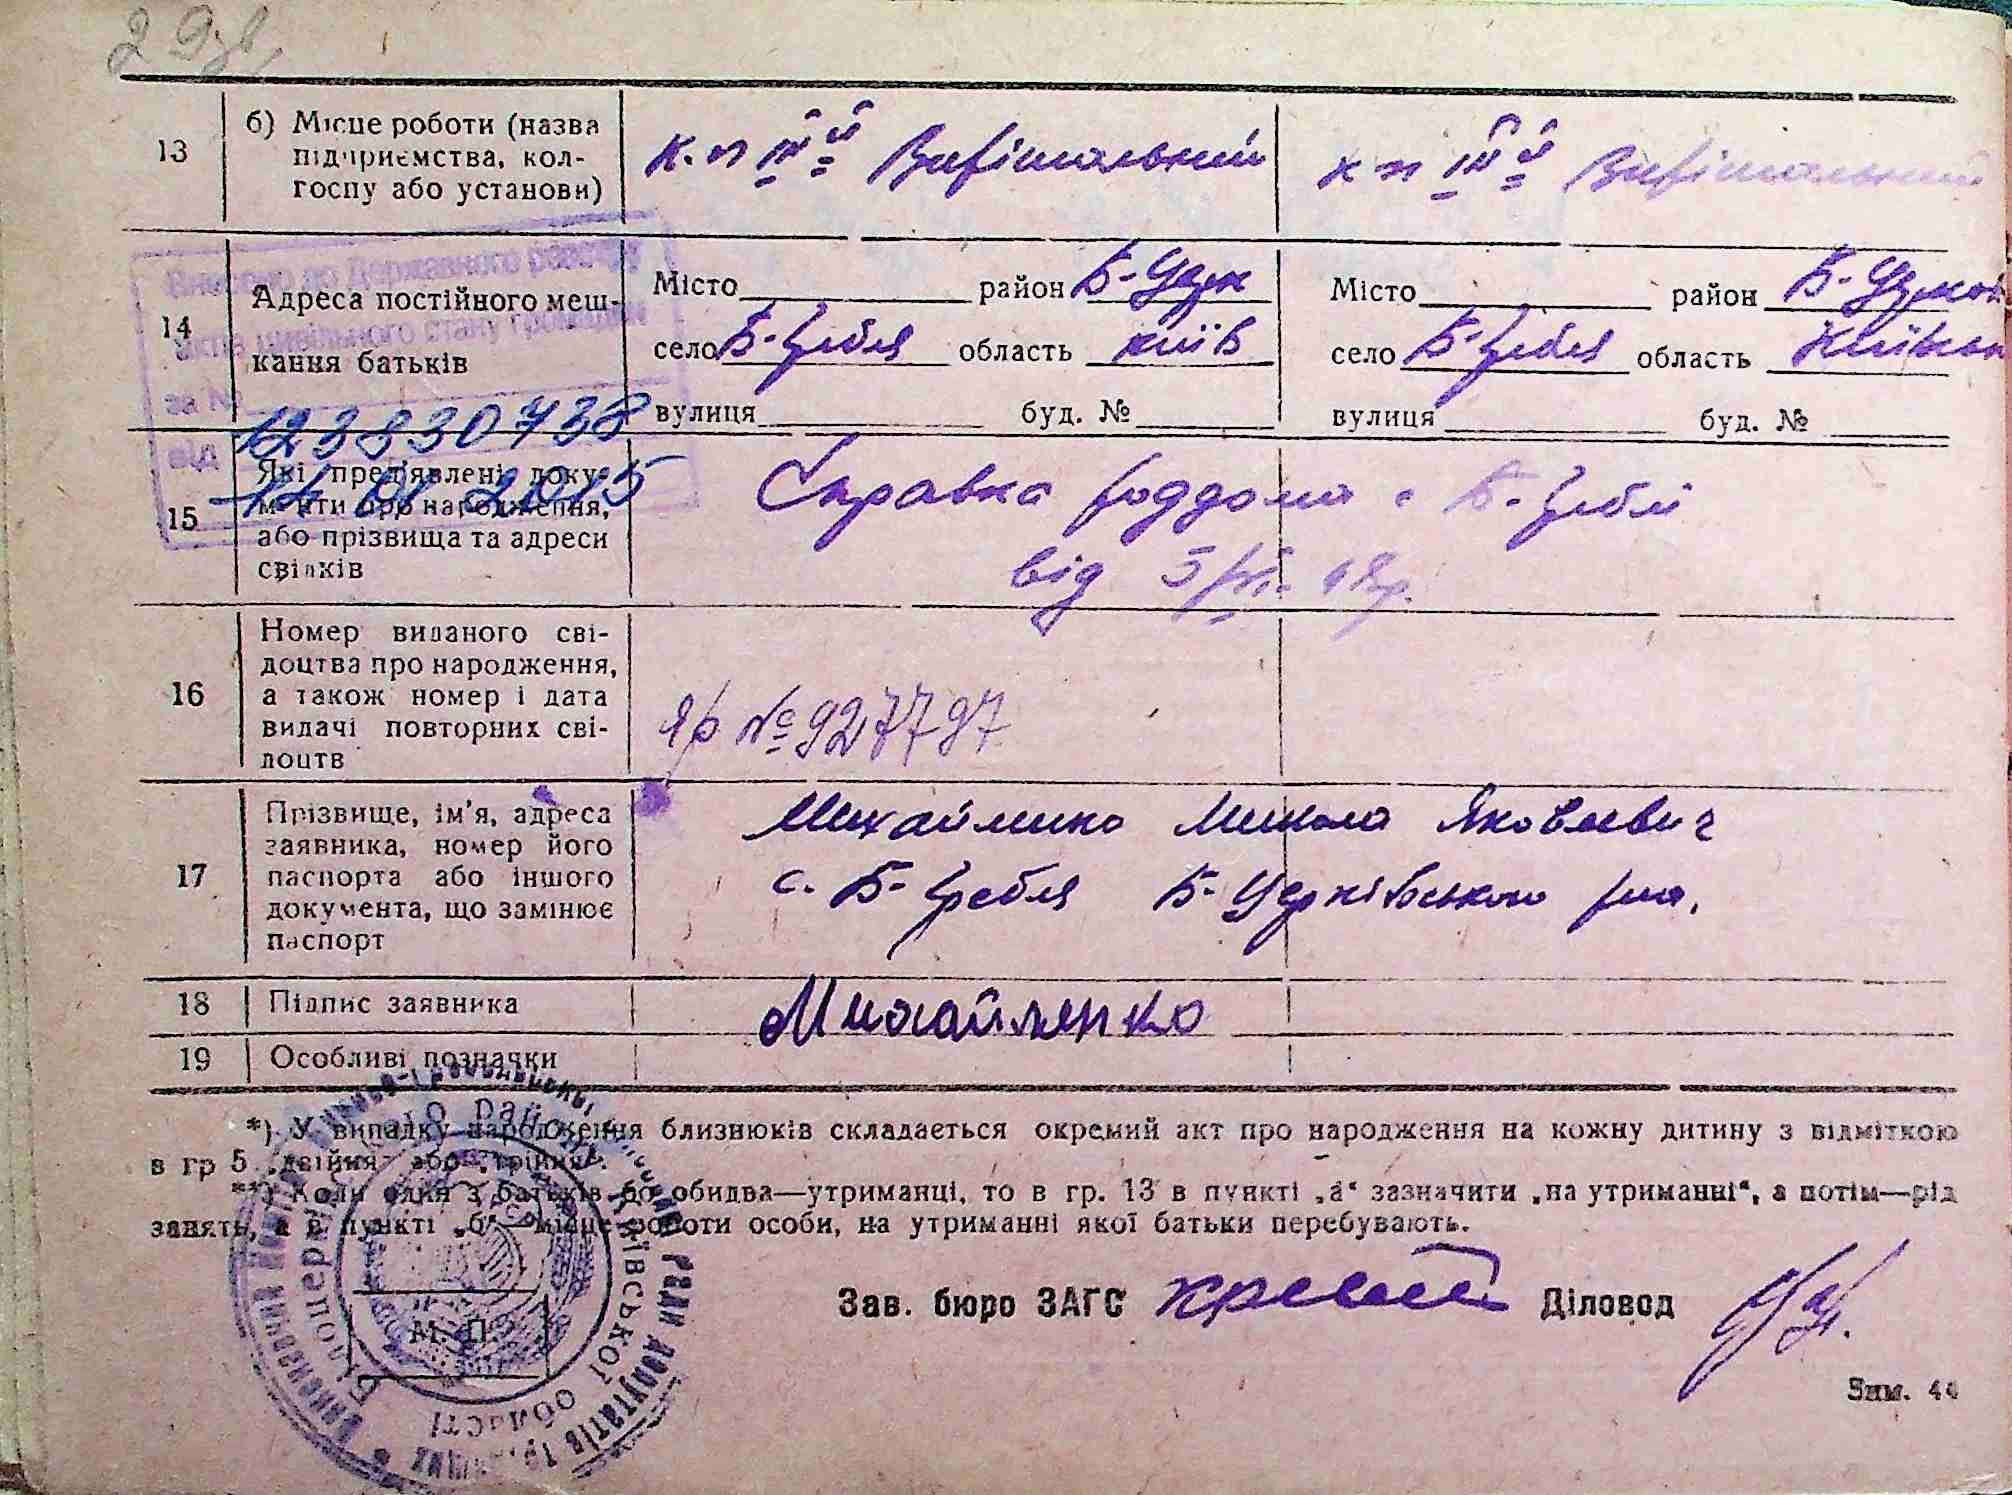 29зв.
13
б) Місце роботи (назва
підприємства, кол-
госпу або установи)
к-п III й Вирішальний
к-п III й Вирішальний
14
Адреса постійного меш-
кання батьків
Місто район Б-Церк
село Б-Гребля область Київ
вулиця буд. №
Місто район Б-Церков
село Б-Гребля область Київськ
вулиця буд. №
Внесено до Державного реєстру
актів цивільного стану громадян
за № 123830738
від 14 01 2015
15
Які пред'явлені доку-
менти про народження,
або прізвища та адреси
свідків
Справка роддома с Б-Греблі
від 5
16
Номер виданого сві-
доцтва про народження,
а також номер і дата
видачі повторних сві-
доцтв
ЯР № 927797
17
Прізвище, ім'я, адреса
заявника, номер його
паспорта або іншого
документа, що замінює
паспорт
Михайленко Микола Яковлевич
с. Б-Гребля Б-Церківського р-на.
18
Підпис заявника
Михайленко
19
Особливі позначки
*) У випадку народження близнюків складається окремий акт про народження на кожну дитину з відміткою
в гр 5 „двійня" або „трійня".
**) Коли один з батьків бо обидва—утриманці, то в гр. 13 в пункті „а" зазначити „на утриманні", а потім—рід
занять, а в пункті „б"—місце роботи особи, на утриманні якої батьки перебувають.
М. П.
Київської області
ради депутатів трудящих
Зав. бюро ЗАГС Діловод
Зим. 44